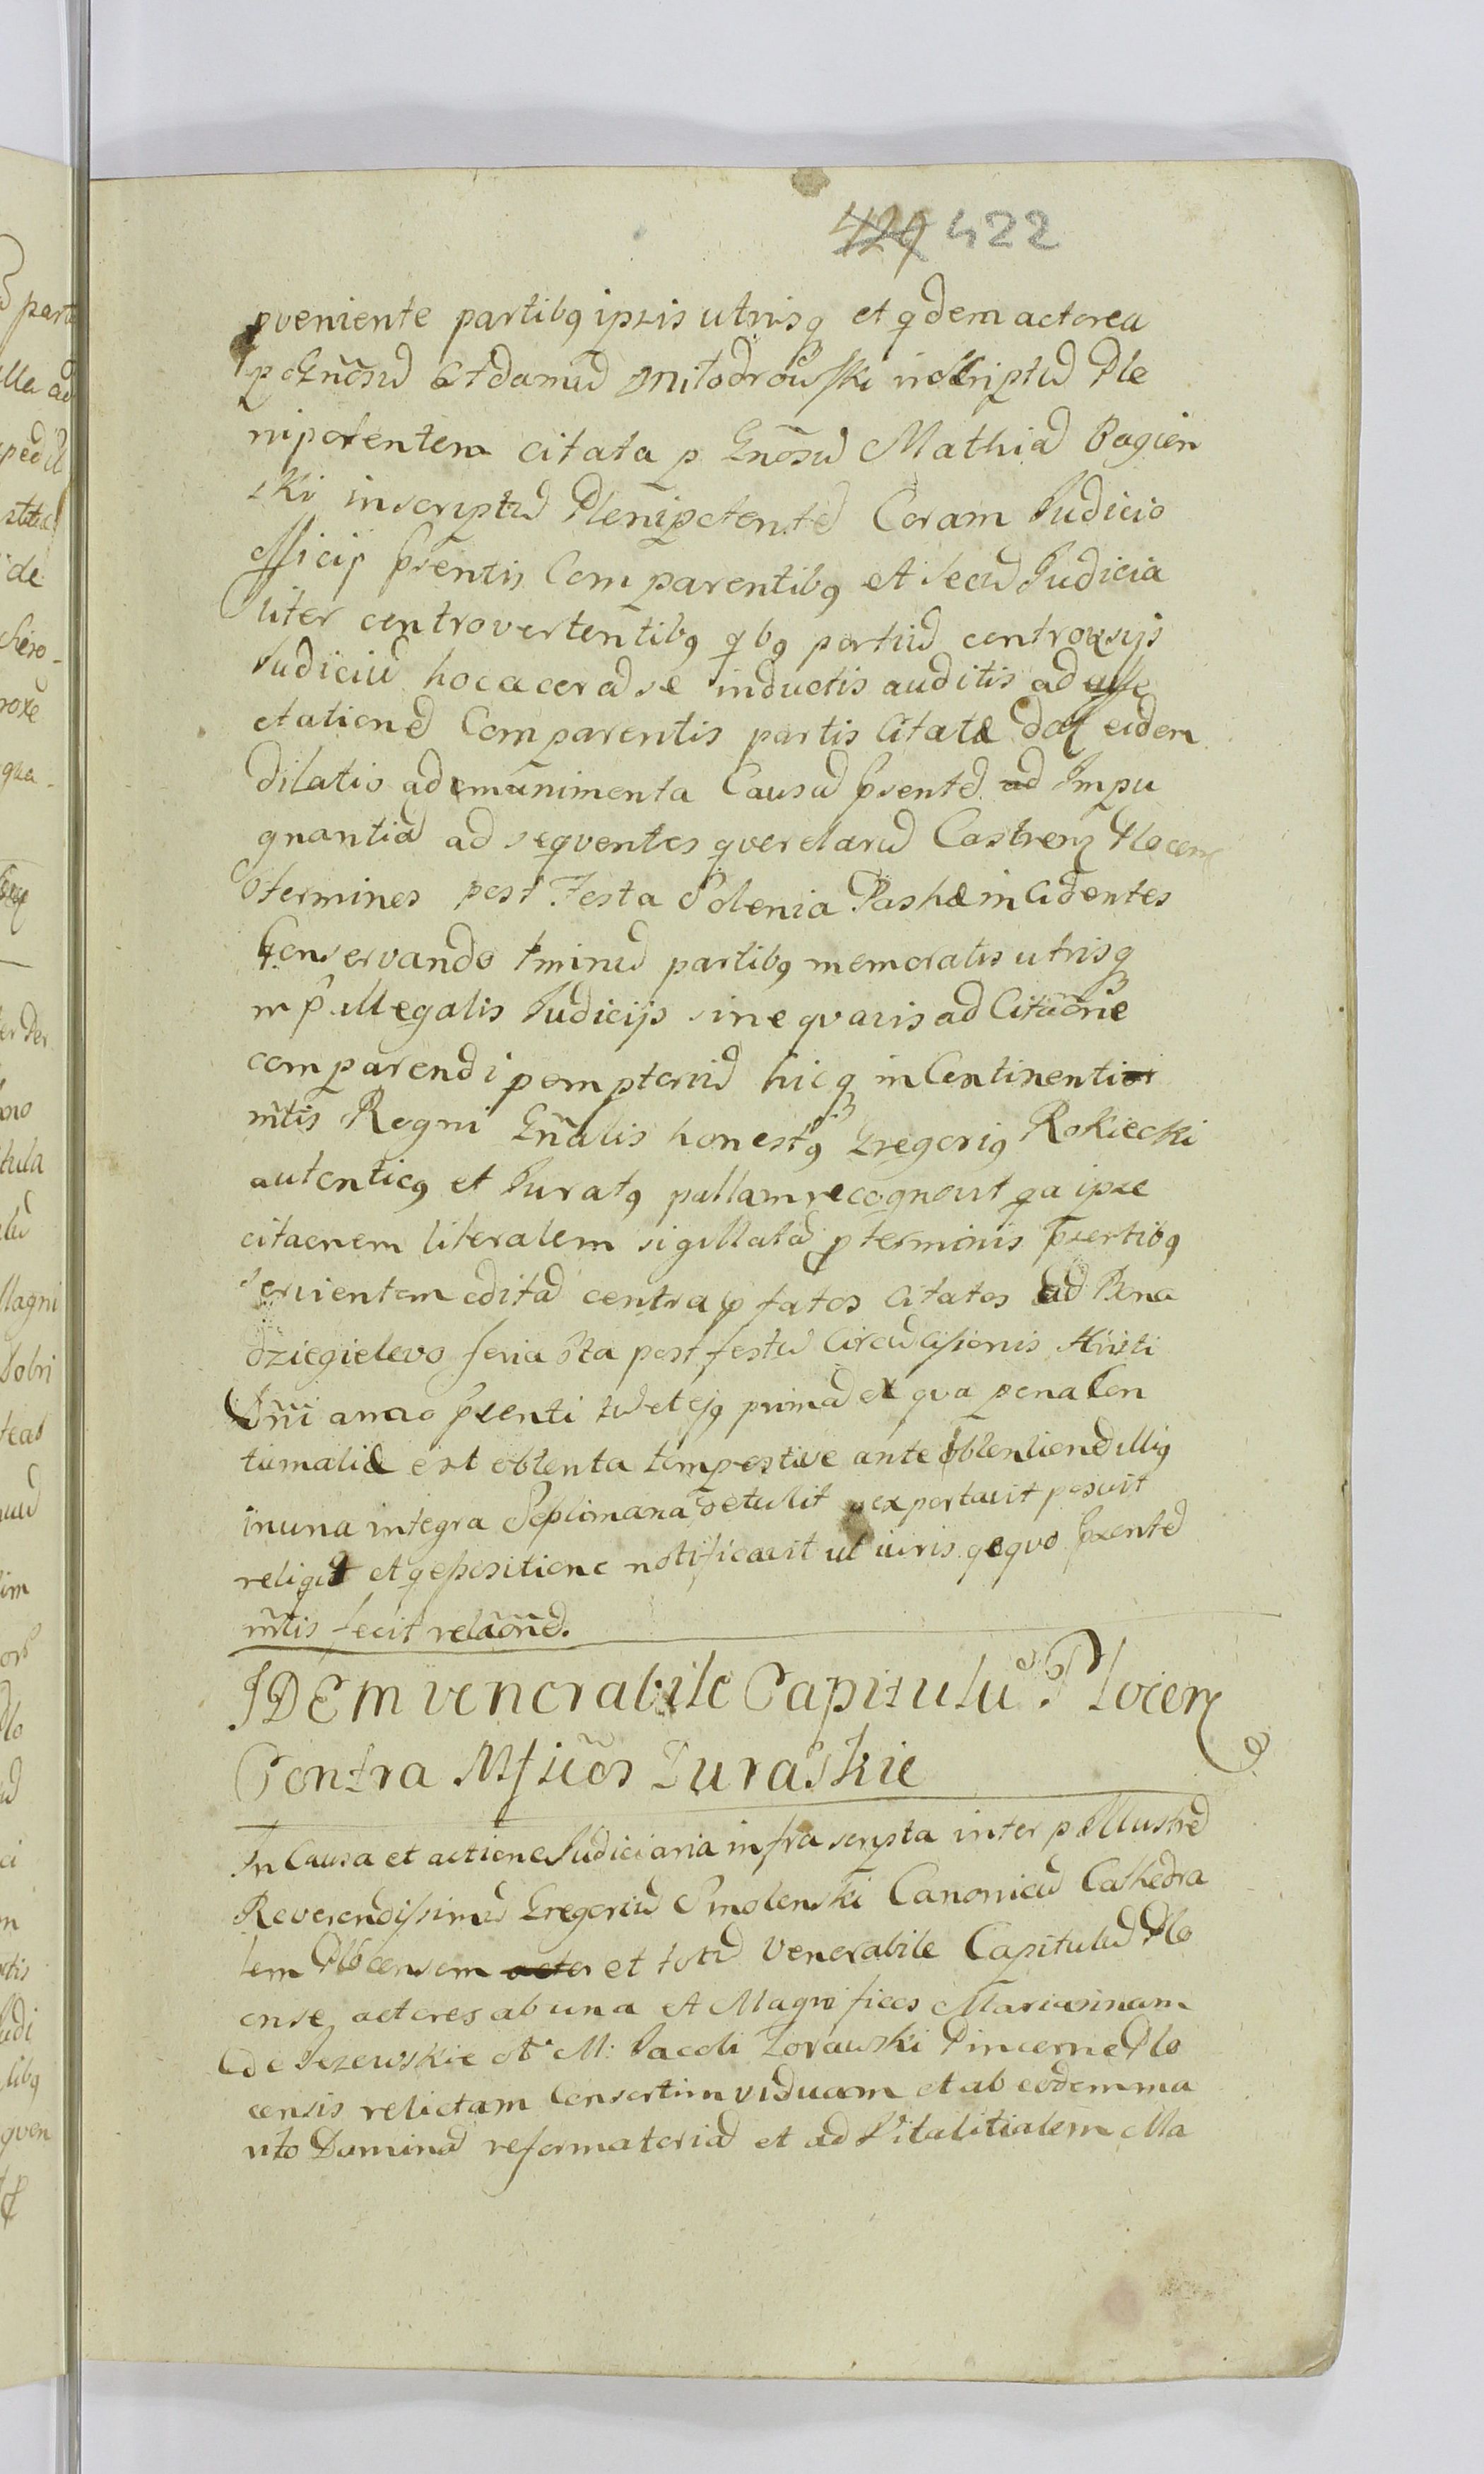 429 422
pveniente partibq ipsis utrisq et qdem actorea
p Gnosū Adamū Miłodrowski inscriptū Ple
nipotentem citata p Gnosū Mathiā Bagien
ski inscriptū Plenipotentē Coram Judicio
officij psentis Comparentibq et secū Judicia
liter controvertentibq qbq partiū controvsijs
Judiciū hocce corā se inductis auditis ad affe
ctationē Comparentis partis Citatæ dat eidem
dilatio ad munimenta Causā psentē ad Impu
gnantia ad seqventes qverelarū Castren Plocen
terminos post Festa Solenia Pashæ incidentes
Conservando tminū partibq memoratis utrisq
in p illegalis Judicijs sine qvavis ad Citāone
comparendi pemptoriū hicq in Continenti
mtis Regni Gnalis honestq Gregoriq Rokiecki
autenticq et Juratq pallam recognovit qa ipse
citaonem literalem sigillatā p terminis psentibq
servientem editā contra pfatos Citatos ad Bona
dziegielevo feria 6ta post festū Circūcisionis Christi
Dñi anno psenti tū et ejq primā ex qva pena Con
tumaliæ est obtenta tempestive ante obtentionē illiq
in una integra Septimana detulit exportavit posuit
religit et qe positione notificavit ut iuris qe qvo psentē
mtis fecit relāonē.
IDEm venerabile Capitulū Plocen
Contra Mficos Zuraskie
In Causa et actione Judiciaria infra scripta inter p Illustrē
Reverendissimū Gregoriū Smolenski Canonicū Cathedra
lem Plocensem actor et totū Venerabile Capitulū Plo
cense actores ab una et Magnificos Mariannam
de Jezewskie ol M: Jacobi Zorawski Pincerne Plo
censis relictam Consortim viduam et ab eodem ma
rito Dominā reformatoriā et ad Vitalitialem Ma